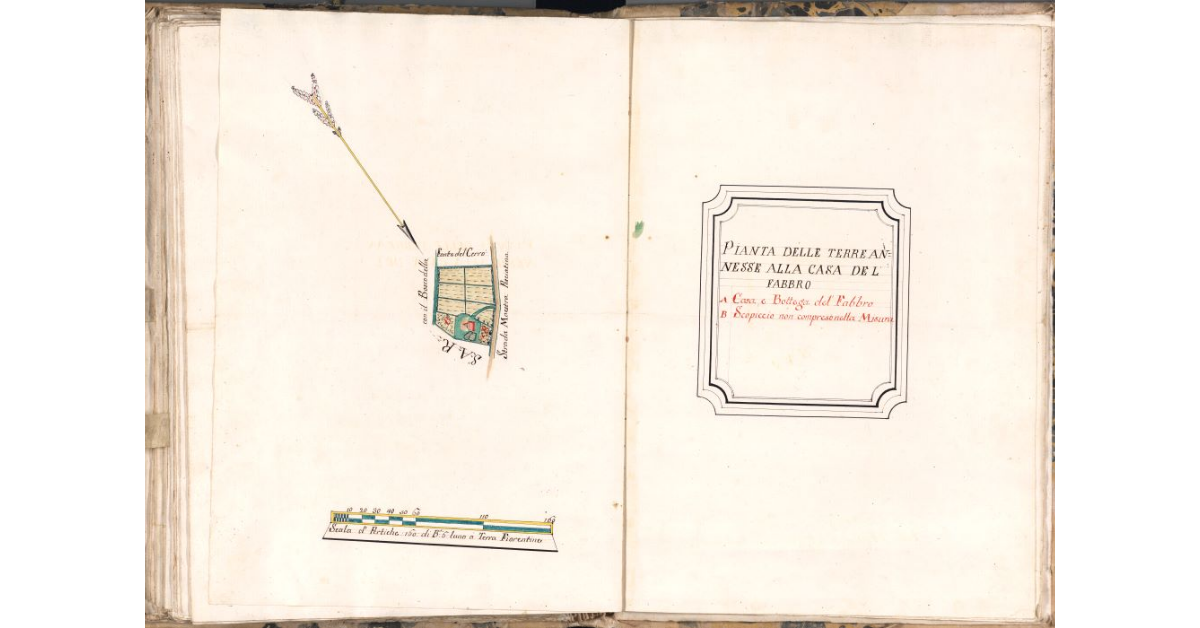 Fonte del Cerro
con il Bosco della
Strada Maestra
S.A.R.
10 20 30 40 50 60 110 160
Scala di Pertiche 160 di B.a 6 luna a Terra Fiorentina
PIANTA DELLE TERRE AN=
NESSE ALLA CASA DEL
FABBRO
A Casa, e Bottega del Fabbro
B Scopiccio non compreso nella Misura